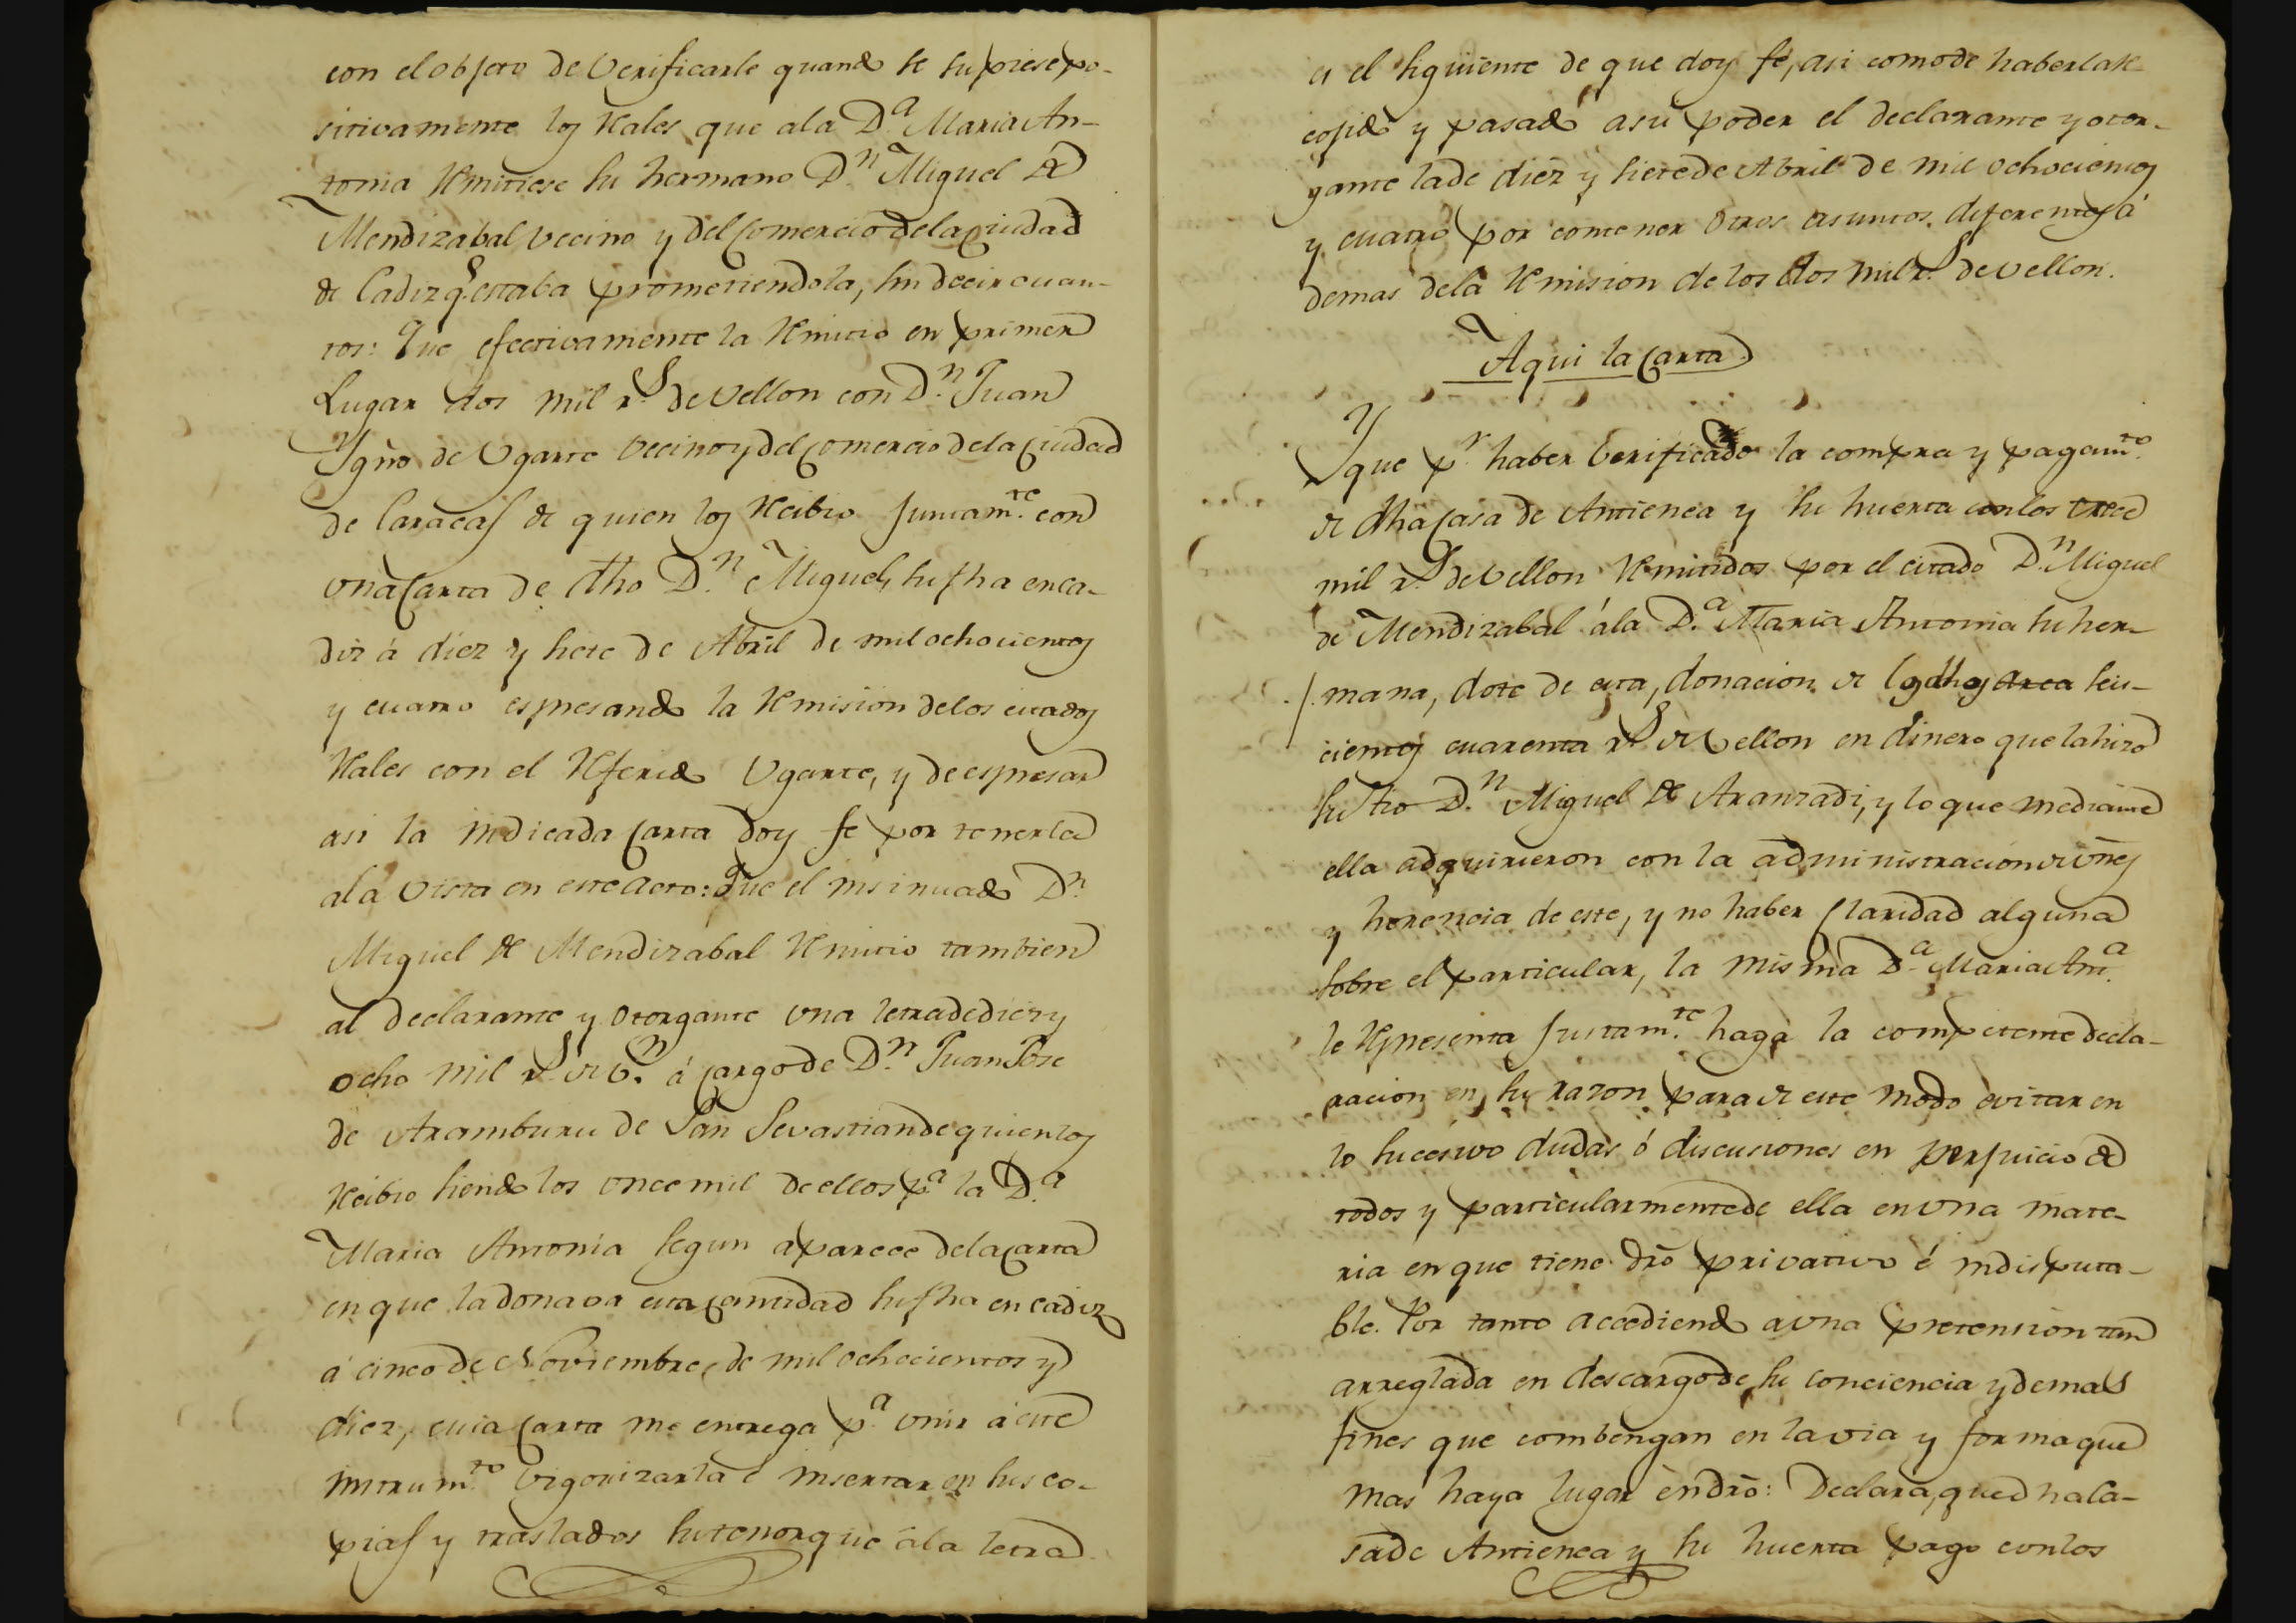 con el objeto de Verificarle quando se supiese po-
sitivamente los Rales que ala D.ª Maria An-
tonia Remitiese su hermano D.n Miguel de
Mendizabal vecino y del Comercio de la Ciudad
de Cadiz q.e estaba prometiendola, sin decir cuan-
tos: Que efectivamente la Remitio en primer
Lugar dos mil r.s de Vellon con D.n Juan
Ygño de Ugarte Vecino y del Comercio de la Ciudad
de Caracas de quien los Recibio juntam.te con
una Carta de dho D.n Miguel, su fha en Ca-
diz á diez y siete de Abril de mil ochocientos
y cuatro espresando la Remision de los citados
Rales con el Referido Ugarte, y de espresar
asi la indicada Carta doy fe por tenerla
ala vista en este acto: Que el insinuado D.n
Miguel de Mendizabal Remitio tambien
al declarante y otorgante una letra de diez y
ocho mil r.s de v.n á cargo de D.n Juan Jose
de Aramburu de San Sevastian de quien los
Recibio siendo los once mil de ellos p.ª la D.ª
Maria Antonia segun aparece de la Carta
en que la donava esta Cantidad su fha en Cadiz
á cinco de Noviembre de mil ochocientos y
diez, cuia Carta me entrega p.ª unir á este
instrum.to vigorizarla é insertar en sus co-
pias y traslados su tenor que á la letra
es el siguiente de que doy fé, asi como de haberla Re-
cojido y pasado a su poder el declarante y otor-
gante la de diez y siete de Abril de mil ochocientos
y cuatro por contener otros asuntos diferentes á
demas dela Remision de los dos mil r.s de vellon.
Aqui la Carta
Y que p.r haber Verificado la compra y pagam.to
de dha Casa de Antienea y su huerta con los trece
mil r.s de Vellon Remitidos por el citado D.n Miguel
de Mendizabal á la D.ª Maria Antonia su her-
mana, dote de esta, donacion de los dhos seis-
cientos cuarenta r.s de Vellon en dinero que la hizo
su tio D.n Miguel de Aranzadi, y lo que mediante
ella adquirieron con la administracion de vñes
y herencia de este, y no haber Claridad alguna
sobre el particular, la misma D.ª Maria Ant.ª
le Representa justam.te haga la competente decla-
racion en su razon para de este modo evitar en
lo sucesivo dudas ó discusiones en perjuicio de
todos y particularmente de ella en una mate-
ria en que tiene dro privativo é indisputa-
ble. Por tanto accediendo a una pretension tan
arreglada en descargo de su conciencia y demas
fines que combengan en la via y forma que
mas haya lugar en dro: Declara, que dha Ca-
sa de Antienea y su huerta pago con los